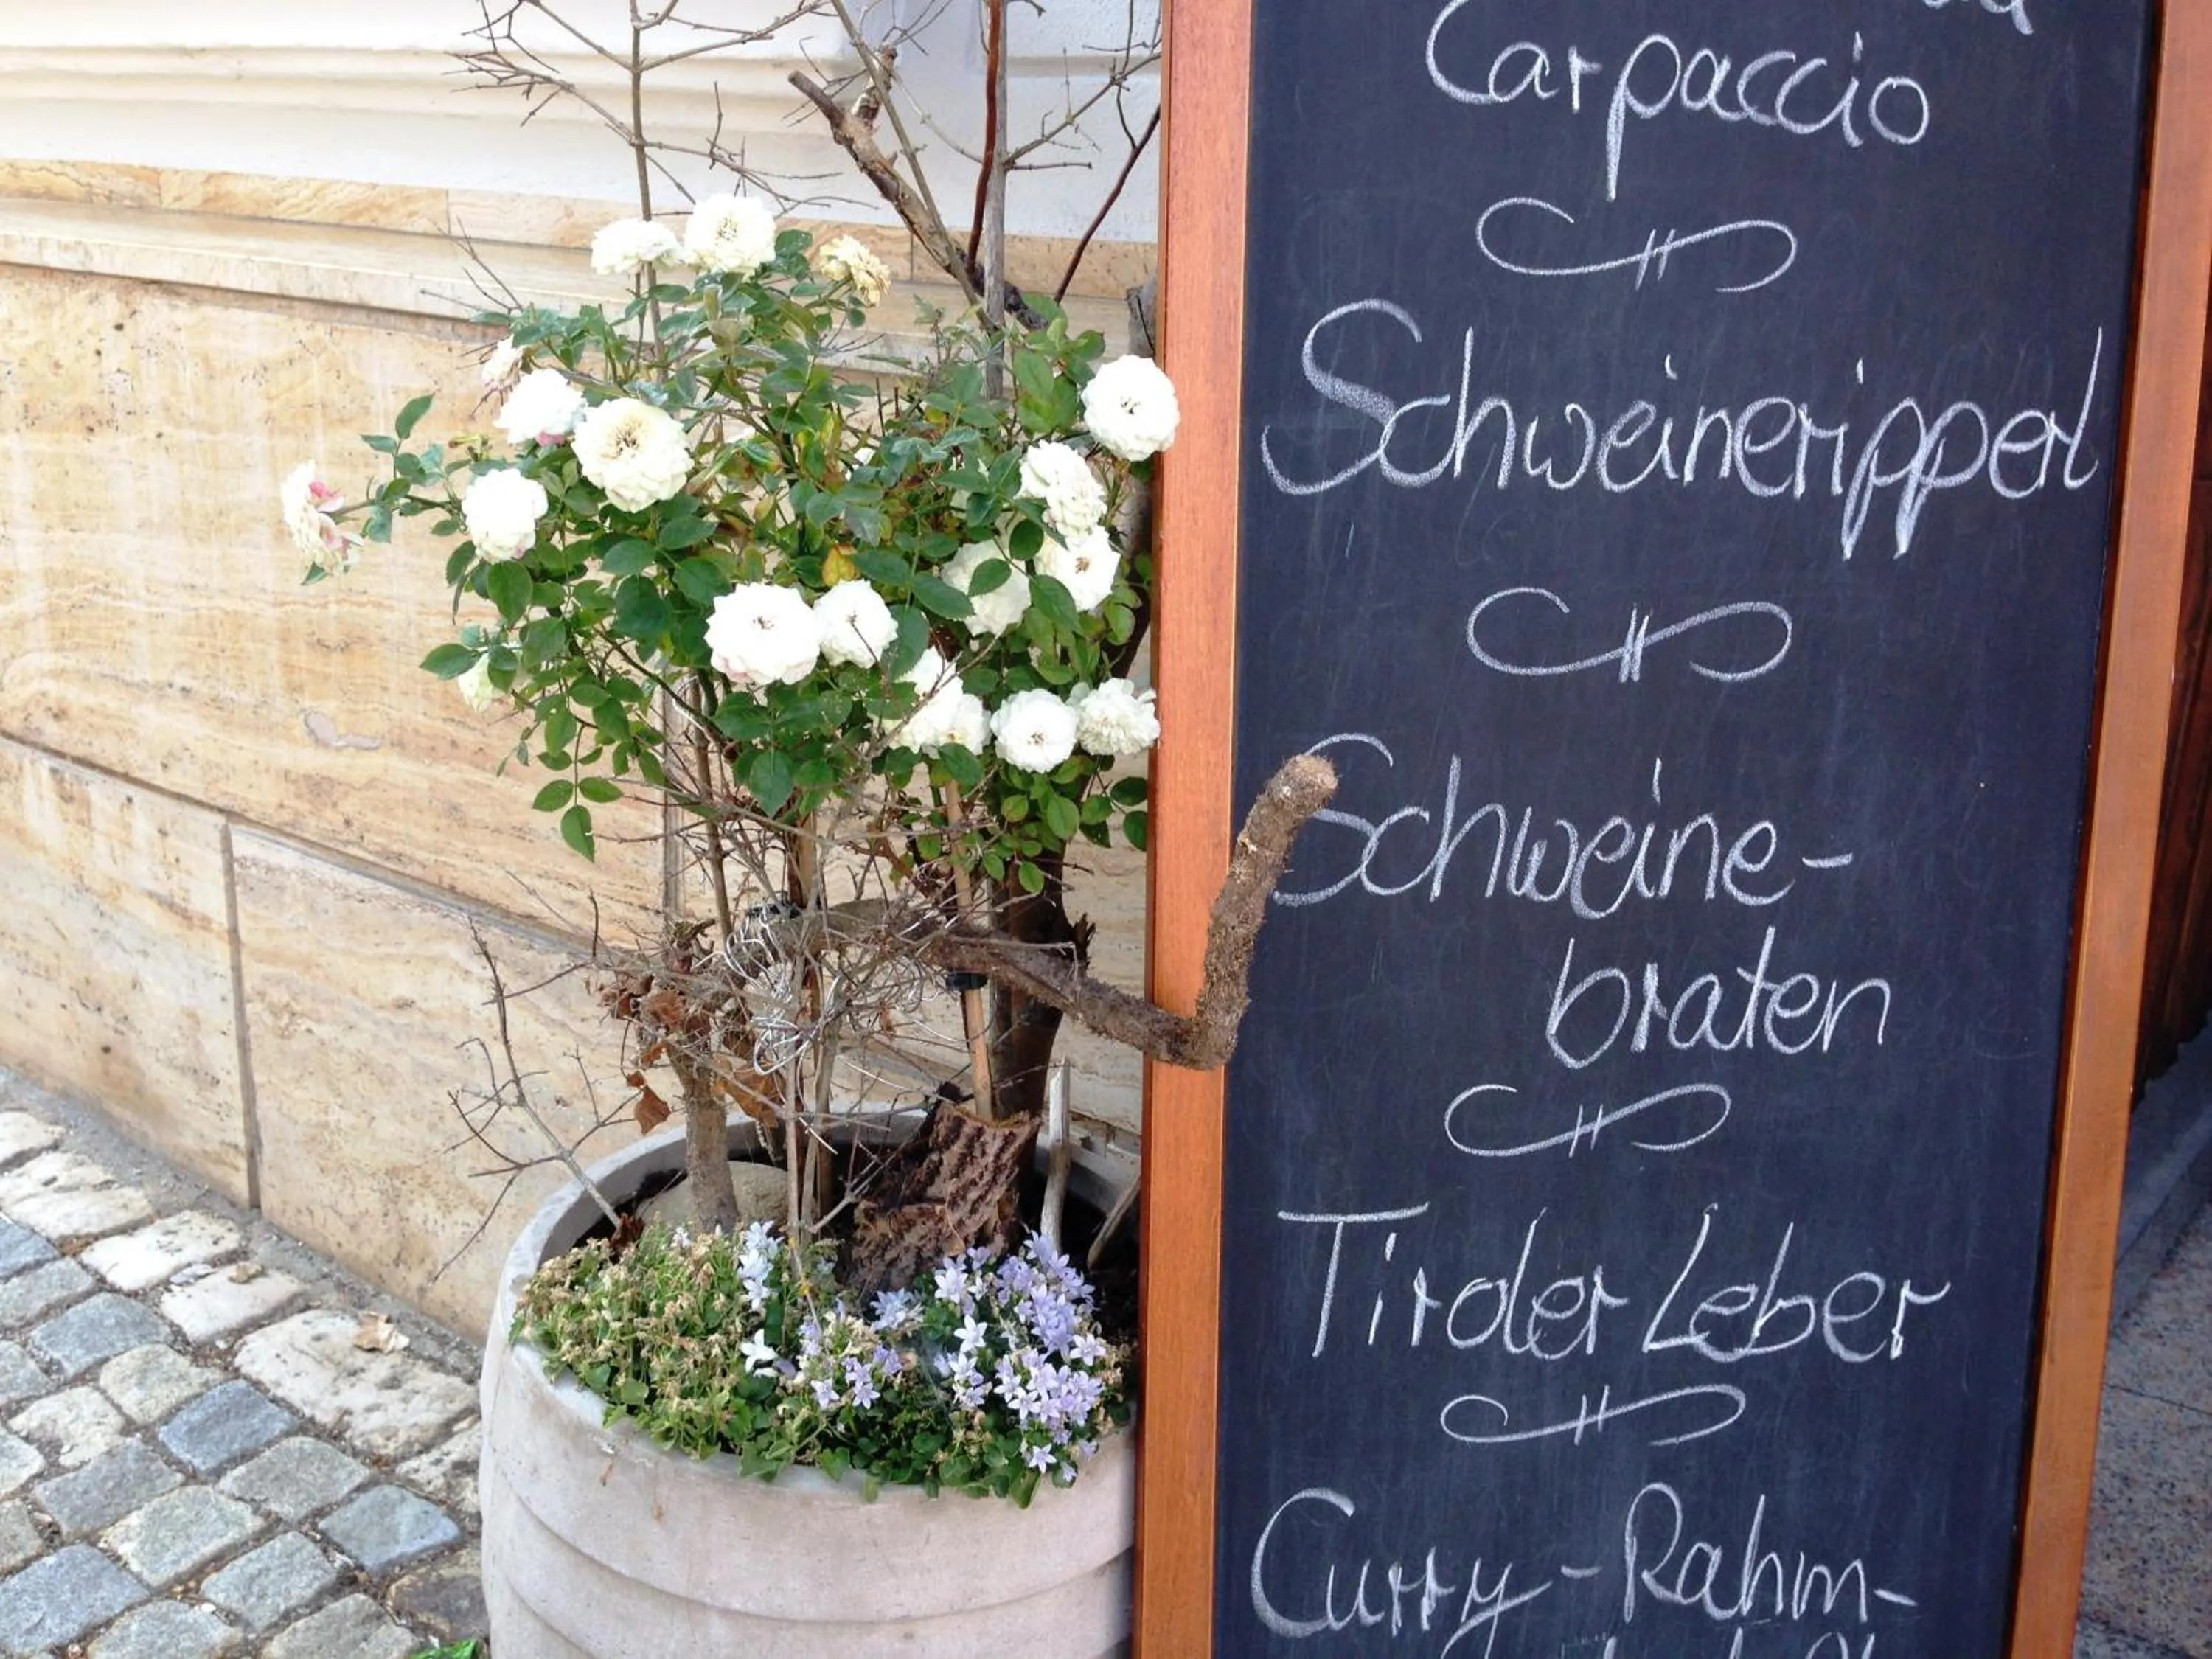 Carpaccio
Schweineripperl
Schweine-
braten
Tiroler Leber
Curry-Rahm-